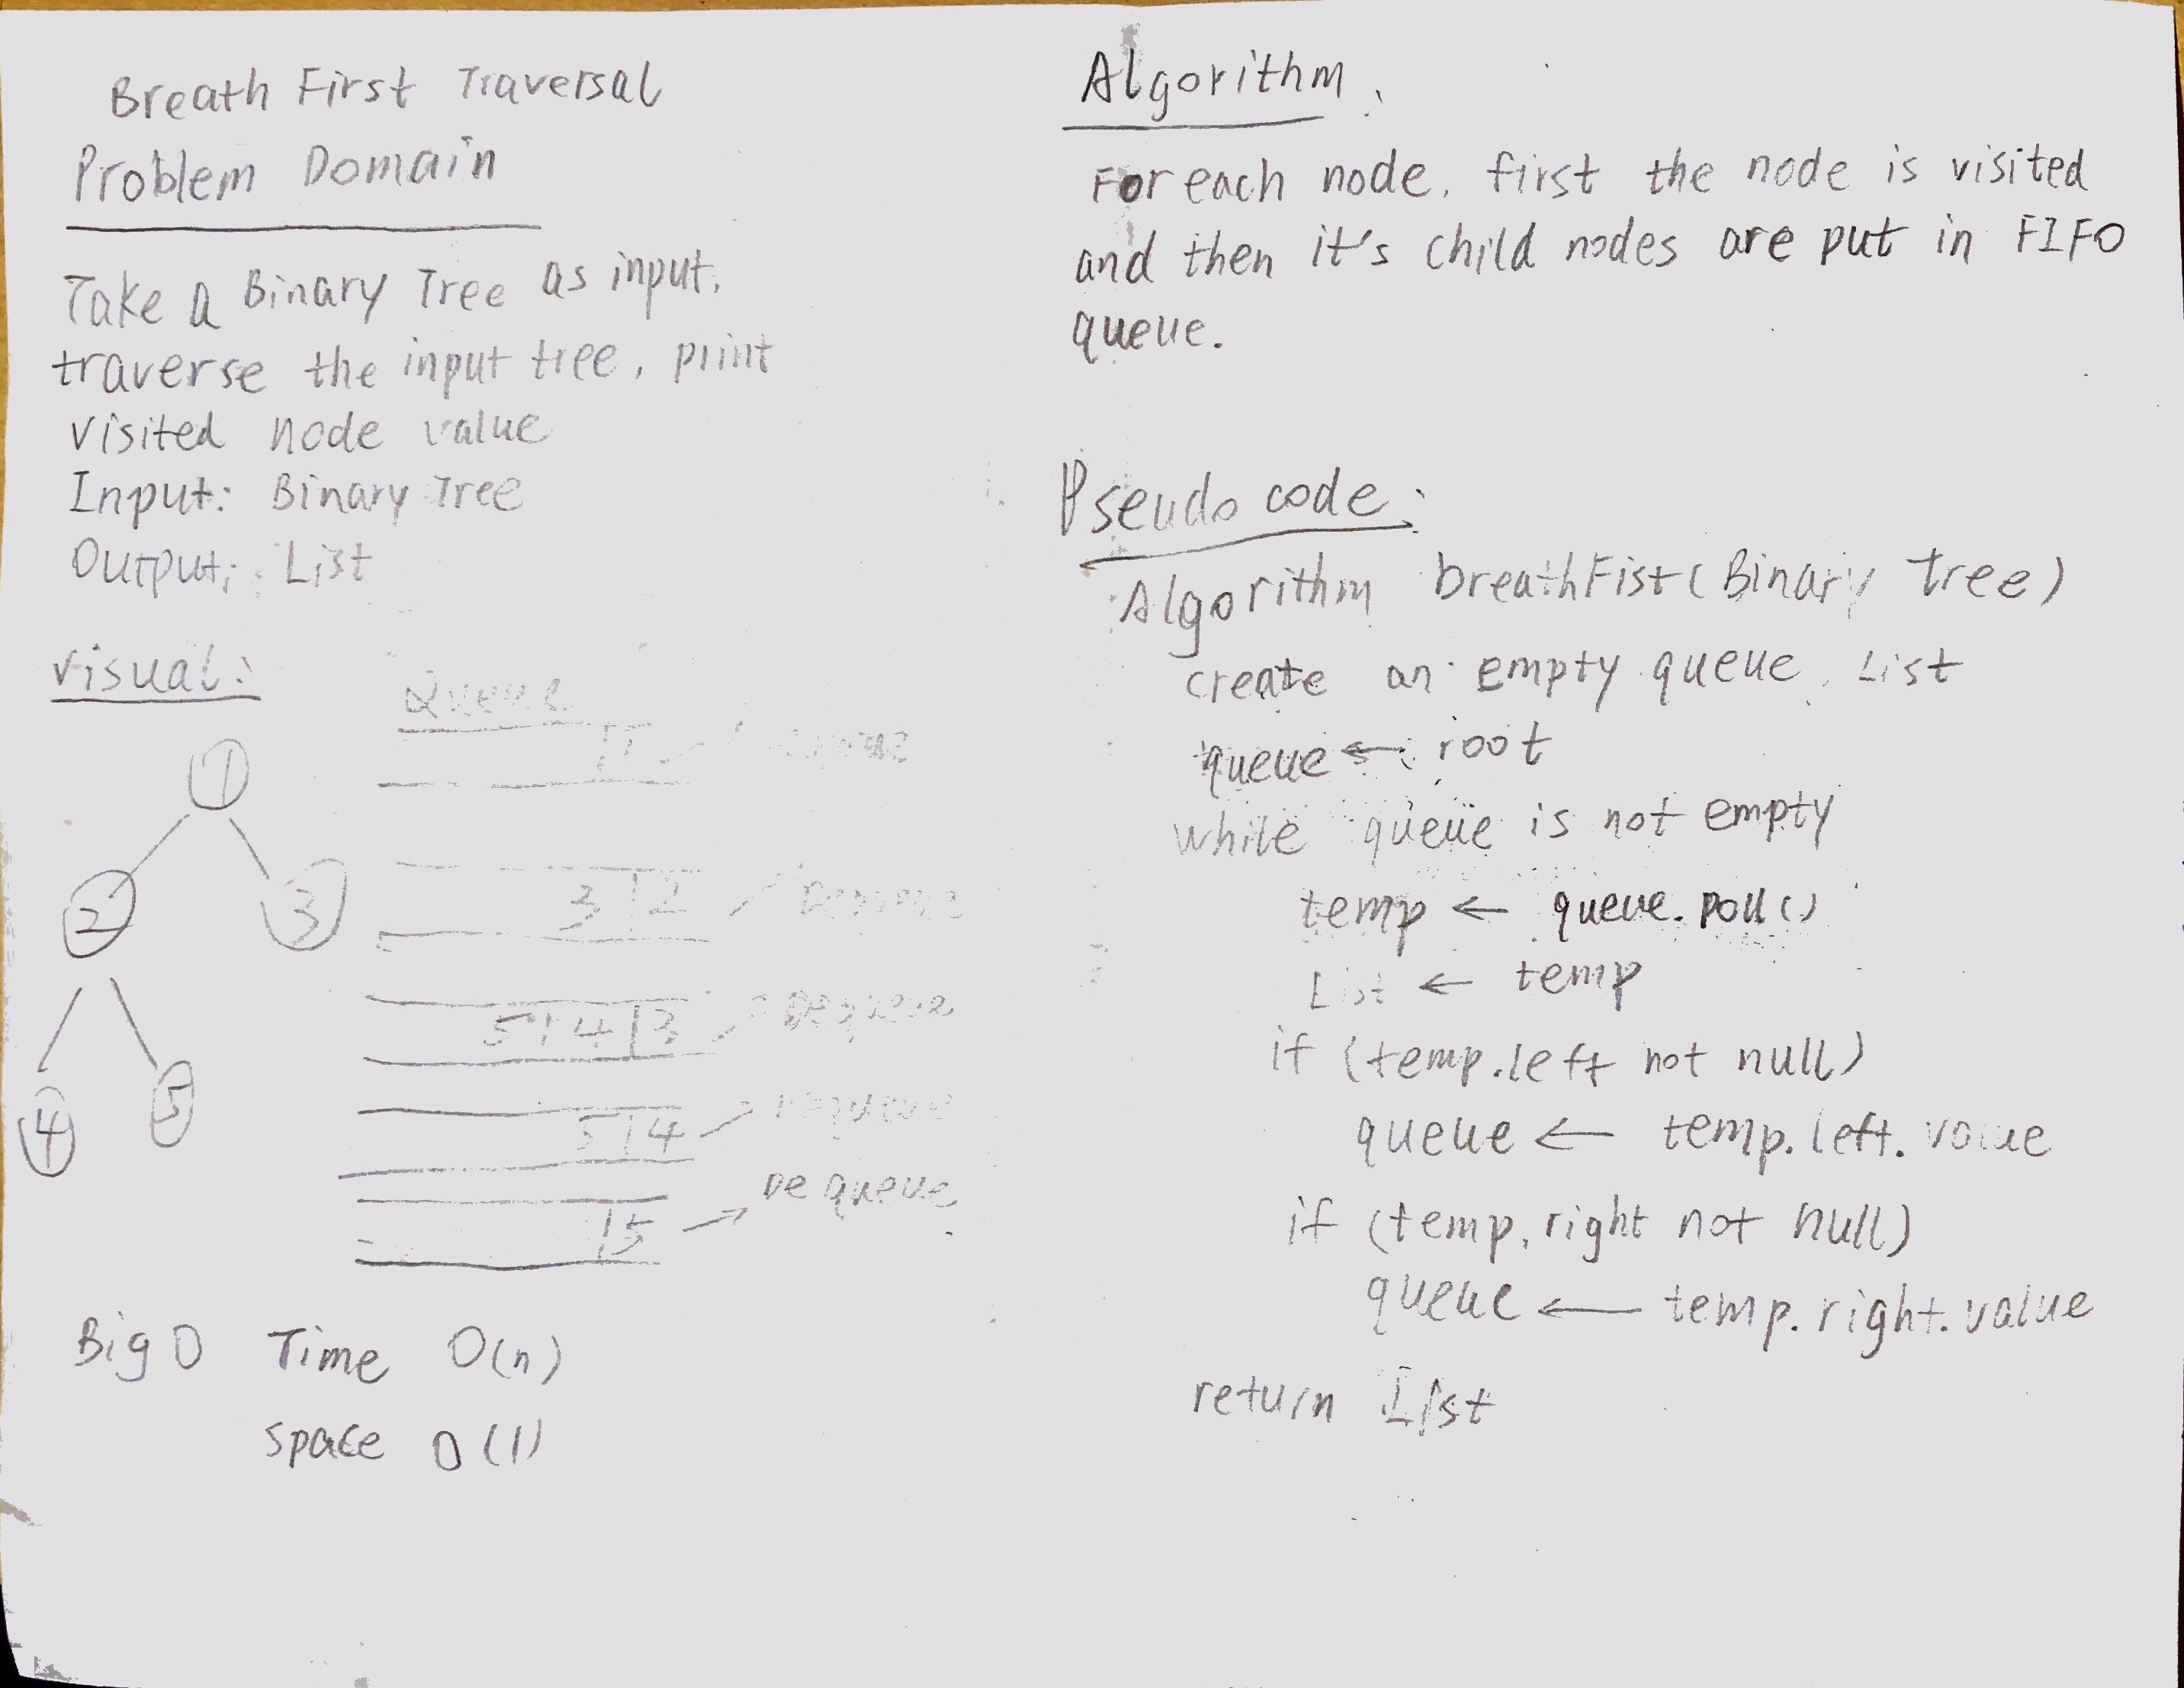 Breath First Traversal
Problem Domain
Take a Binary Tree as input,
traverse the input tree, print
visited node value
Input: Binary Tree
Output: List
Visual:
Queue
1
1
2
3
3 | 2
Dequeue
5 | 4 | 3
Dequeue
4
5
5 | 4
Dequeue
5
Dequeue
Big O Time O(n)
Space O(1)
Algorithm:
For each node, first the node is visited
and then it's child nodes are put in FIFO
queue.
Pseudo code:
Algorithm breathFist(Binary Tree)
create an empty queue, List
queue ← root
while queue is not empty
temp ← queue.poll()
List ← temp
if (temp.left not null)
queue ← temp.left.value
if (temp.right not null)
queue ← temp.right.value
return List